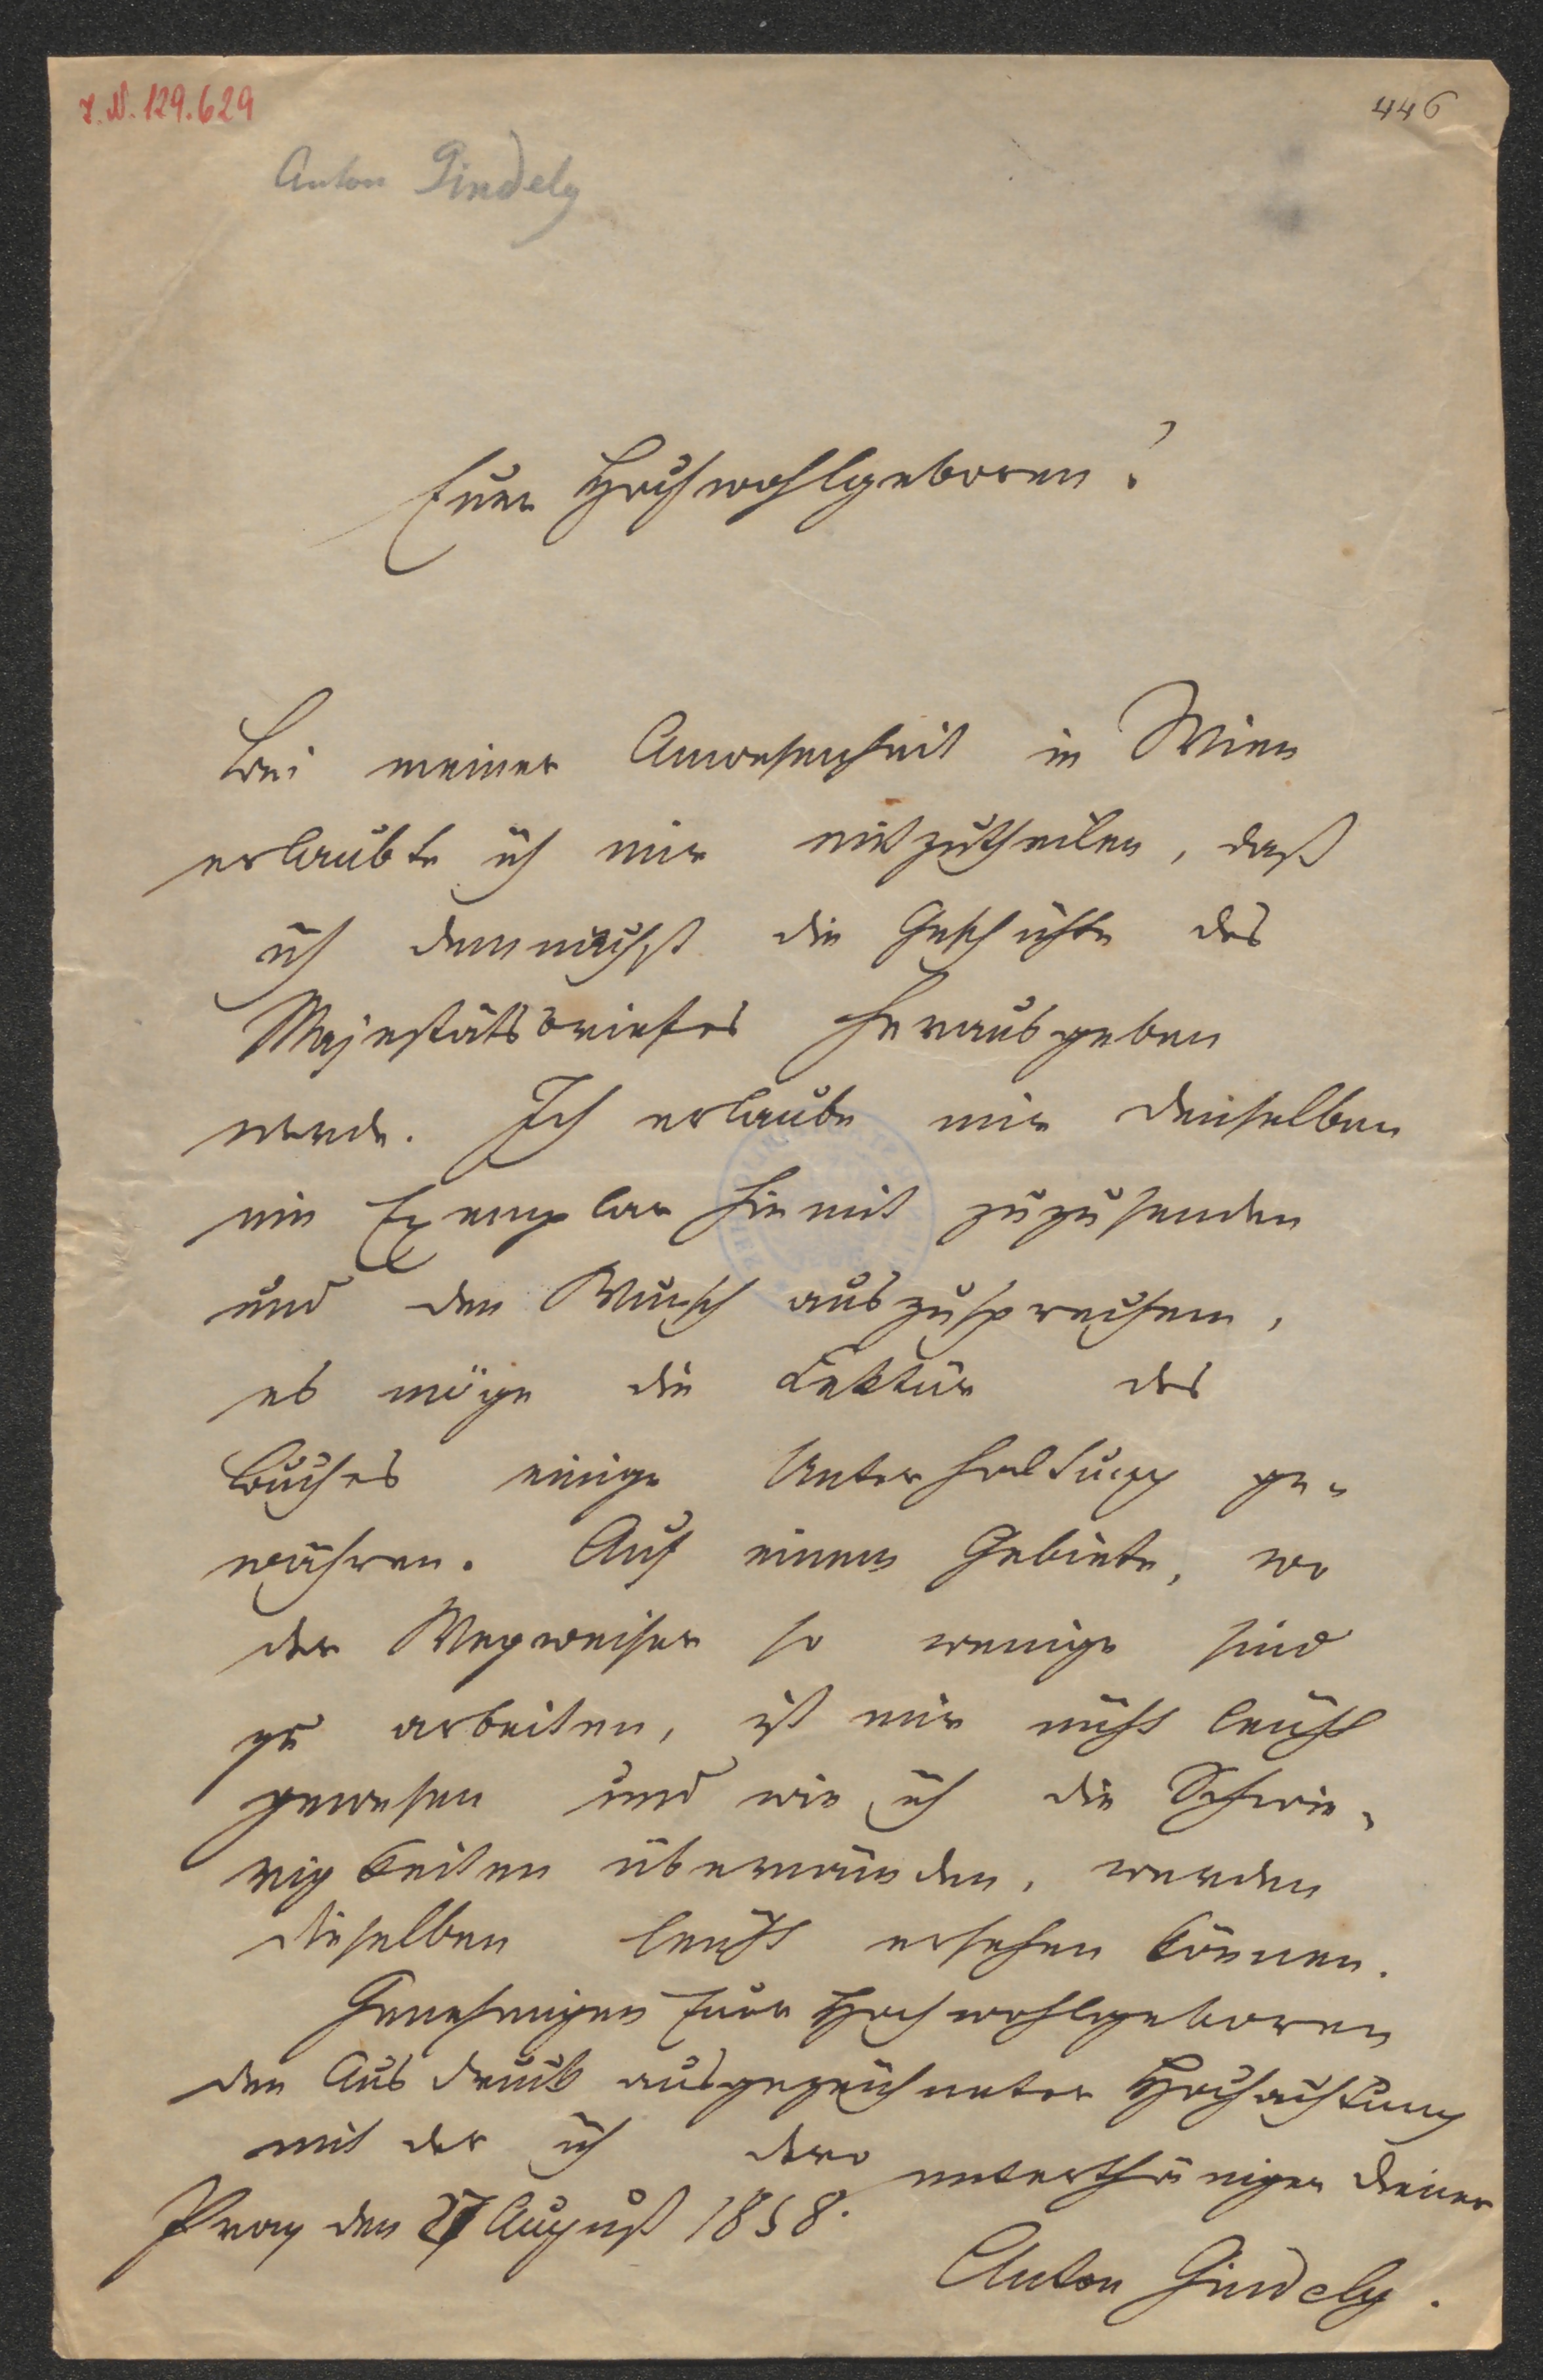 I. N. 129.629
446
Anton Gindely
Euer Hochwohlgeboren!
Bei meiner Anwesenheit in Wien
erlaubte ich mir mitzutheilen, daß
ich demnächst die Geschichte des
Majestätsbriefes herausgeben
werde. Ich erlaube mir denselben
ein Exemplar hiemit zuzusenden
und den Wunsch auszusprechen,
es möge die Lektüre des
Buches einige Unterhaltung ge-
währen. Auf einem Gebiete, wo
der Wegweiser so wenige sind
zu arbeiten, ist mir nicht leicht
gewesen und wie ich die Schwie-
rigkeiten überwunden, werden
dieselben leicht ersehen können.
Genehmigen Euer Hochwohlgeboren
den Ausdruck ausgezeichneter Hochachtung
mit der ich dero unterthäniger Diener
Prag den 27 August 1858.
Anton Gindely.